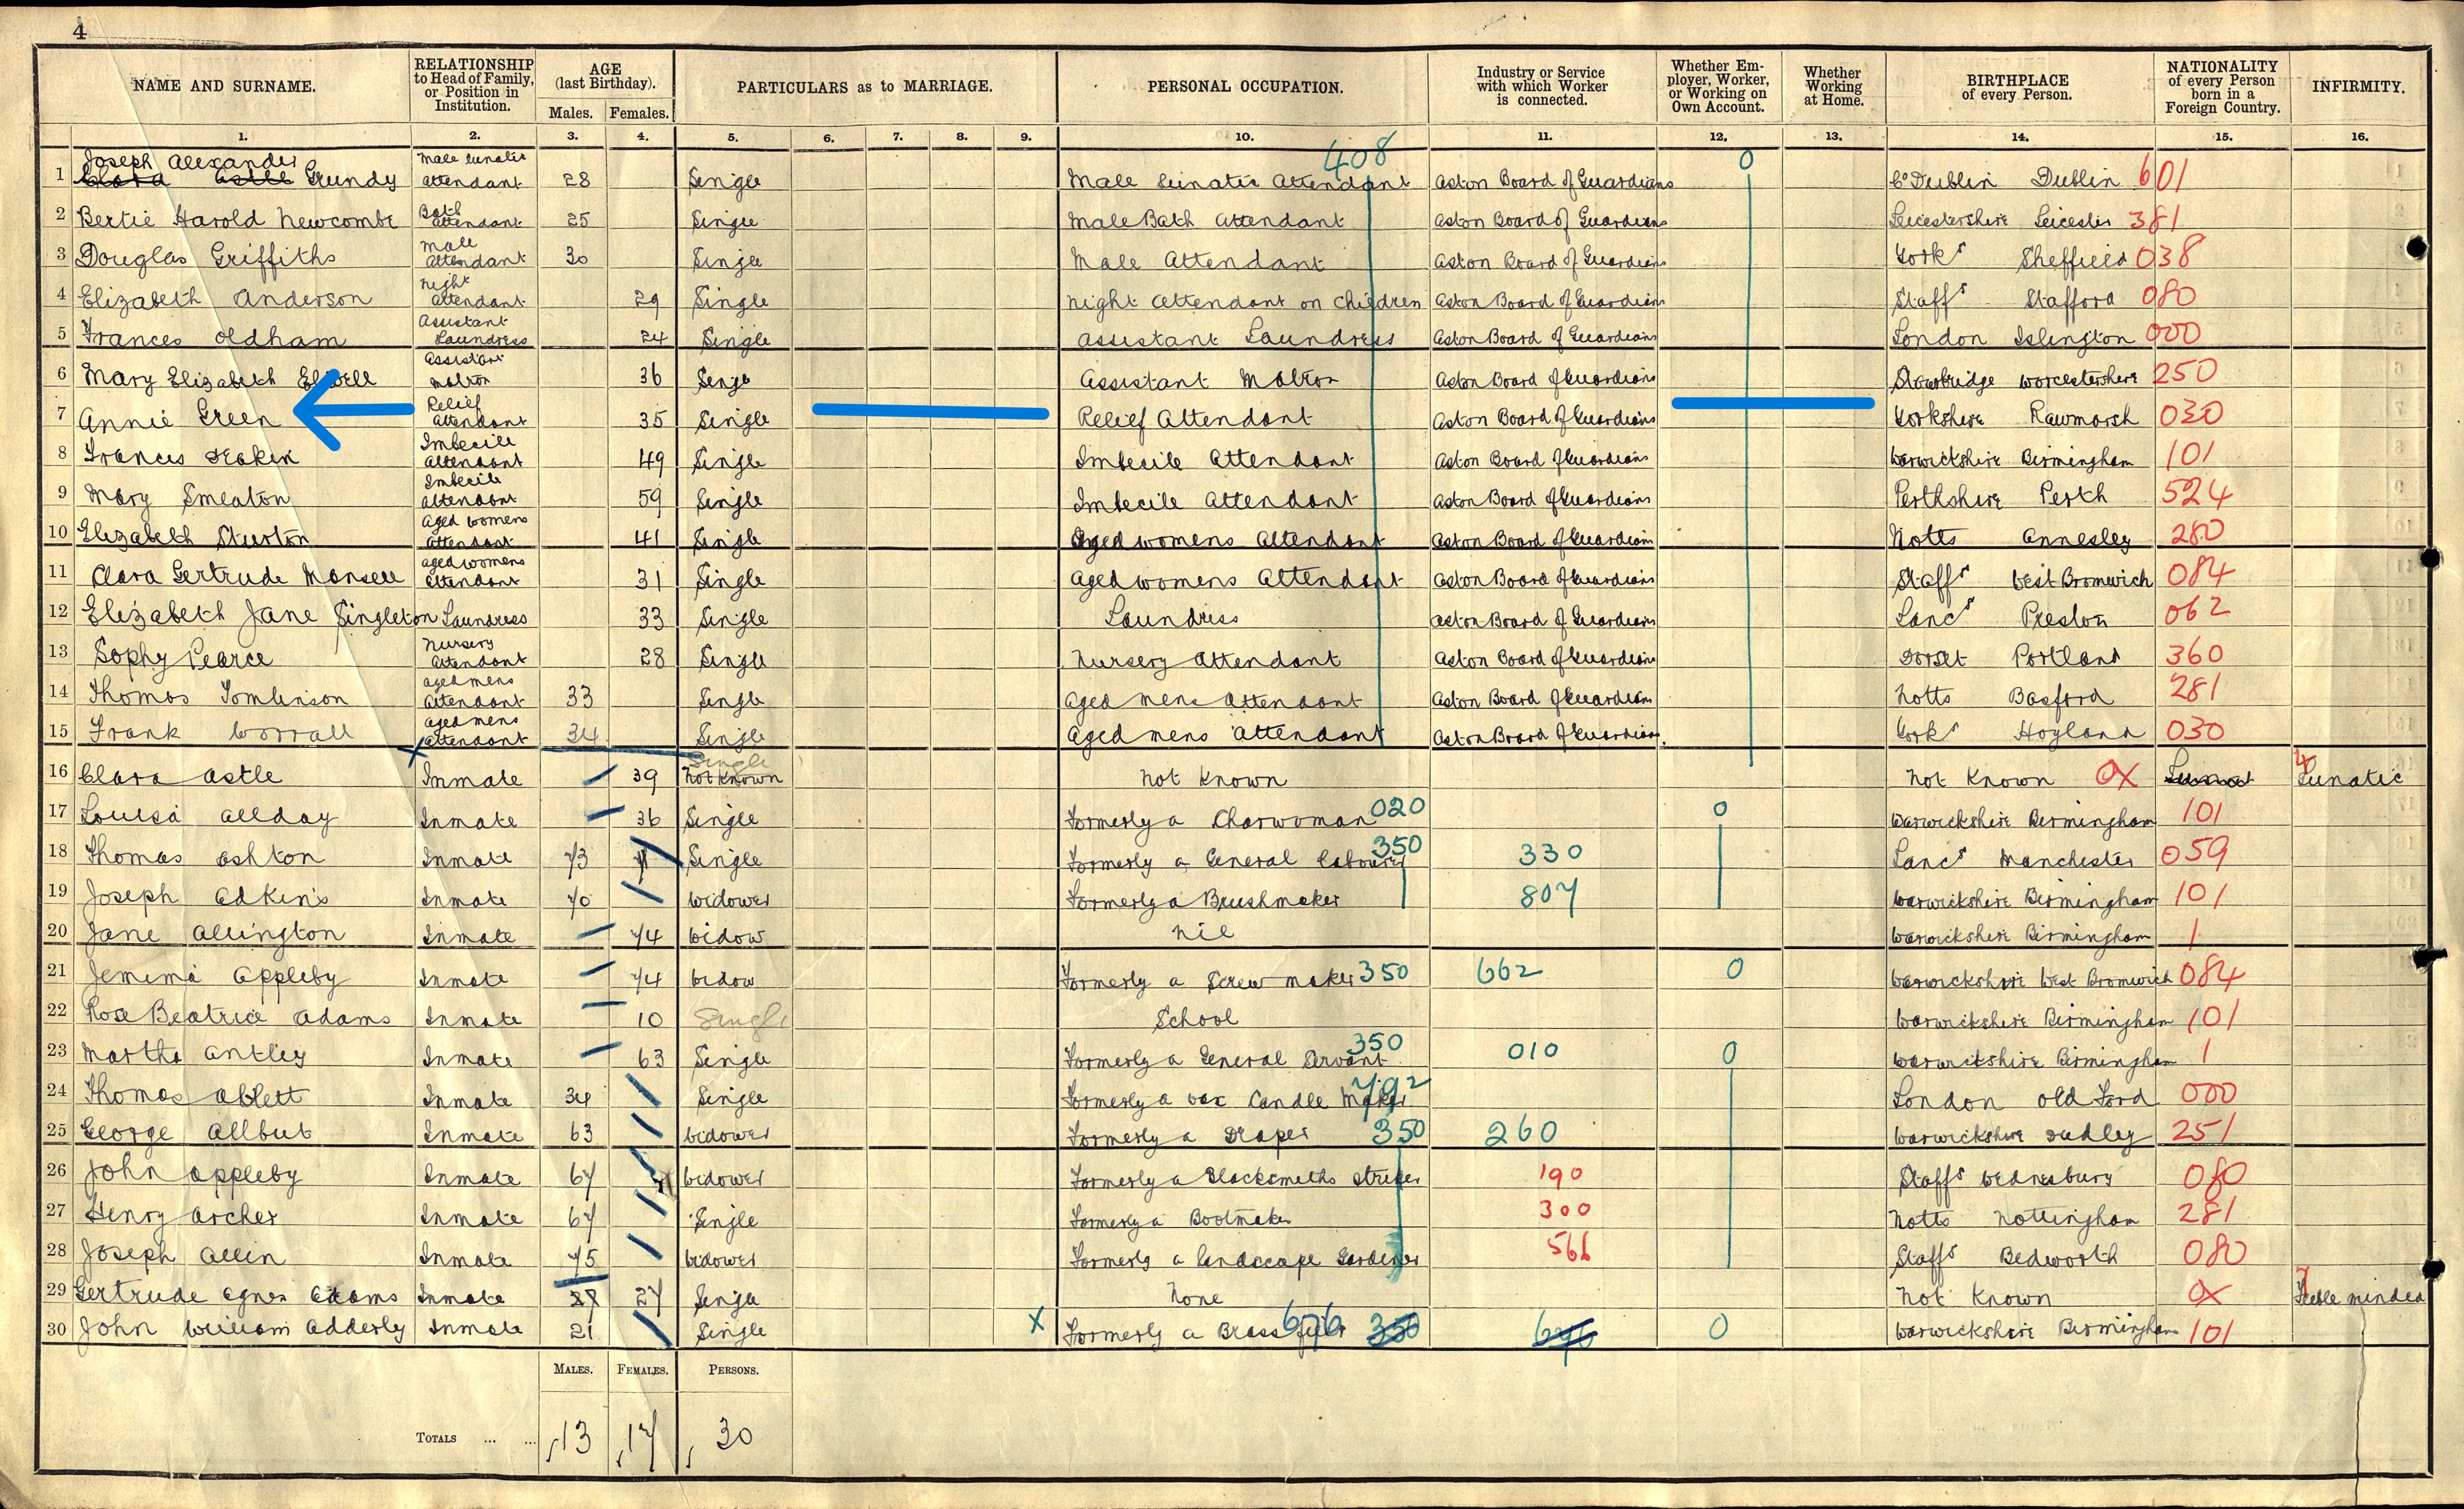 4
NAME AND SURNAME.
RELATIONSHIP
to Head of Family,
or Position in
Institution.
AGE
(last Birthday).
Males.
Females.
PARTICULARS as to MARRIAGE.
PERSONAL OCCUPATION.
Industry or Service
with which Worker
is connected.
Whether Em-
ployer, Worker,
or Working on
Own Account.
Whether
Working
at Home.
BIRTHPLACE
of every Person.
NATIONALITY
of every Person
born in a
Foreign Country.
INFIRMITY.
1. 2. 3. 4. 5. 6. 7. 8. 9. 10. 11. 12. 13. 14. 15. 16.
408
1 Joseph Alexander Clara Astle Grundy Male Lunatic Attendant 28 Single Male Lunatic Attendant Aston Board of Guardians 0 Co Dublin Dublin 601
2 Bertie Harold Newcombe Bath Attendant 25 Single Male Bath Attendant Aston Board of Guardians Leicestershire Leicester 381
3 Douglas Griffiths Male Attendant 30 Single Male Attendant Aston Board of Guardians Yorks Sheffield 038
4 Elizabeth Anderson Night Attendant 29 Single Night Attendant on Children Aston Board of Guardians Staffs Stafford 080
5 Frances Oldham Assistant Laundress 24 Single Assistant Laundress Aston Board of Guardians London Islington 000
6 Mary Elizabeth Elwell Assistant Matron 36 Single Assistant Matron Aston Board of Guardians Stourbridge Worcestershire 250
7 Annie Green Relief Attendant 35 Single Relief Attendant Aston Board of Guardians Yorkshire Rawmarsh 030
8 Frances Deakin Imbecile Attendant 49 Single Imbecile Attendant Aston Board of Guardians Warwickshire Birmingham 101
9 Mary Smeaton Imbecile Attendant 59 Single Imbecile Attendant Aston Board of Guardians Perthshire Perth 524
10 Elizabeth Sturton Aged womens Attendant 41 Single Aged womens Attendant Aston Board of Guardians Notts Annesley 280
11 Clara Gertrude Mansell Aged womens Attendant 31 Single Aged womens Attendant Aston Board of Guardians Staffs West Bromwich 084
12 Elizabeth Jane Singleton Laundress 33 Single Laundress Aston Board of Guardians Lancs Preston 062
13 Sophy Pearce Nursery Attendant 28 Single Nursery Attendant Aston Board of Guardians Dorset Portland 360
14 Thomas Tomlinson Aged mens Attendant 33 Single Aged mens Attendant Aston Board of Guardians Notts Basford 281
15 Frank Worrall Aged mens Attendant 34 Single Aged mens Attendant Aston Board of Guardians. Yorks Hoyland 030
16 Clara Astle Inmate 39 Single Not Known Not Known Not Known OX Lunatic
17 Louisa Allday Inmate 36 Single Formerly a Charwoman 020 0 Warwickshire Birmingham 101
18 Thomas Ashton Inmate 73 Single Formerly a General Labourer 350 330 Lancs Manchester 059
19 Joseph Adkins Inmate 70 Widower Formerly a Brushmaker 807 Warwickshire Birmingham 101
20 Jane Allington Inmate 74 Widow Nil Warwickshire Birmingham 1
21 Jemima Appleby Inmate 74 Widow Formerly a Screw maker 350 662 0 Warwickshire West Bromwich 084
22 Rose Beatrice Adams Inmate 10 Single School Warwickshire Birmingham 101
23 Martha Antley Inmate 63 Single Formerly a General Servant 350 010 0 Warwickshire Birmingham 1
24 Thomas Ablett Inmate 34 Single Formerly a wax Candle Maker 792 London Old Ford 000
25 George Allbut Inmate 63 Widower Formerly a Draper 350 260 Warwickshire Dudley 251
26 John Appleby Inmate 67 Widower Formerly a Blacksmiths Striker 190 Staffs Wednesbury 080
27 Henry Archer Inmate 67 Single Formerly a Bootmaker 300 Notts Nottingham 281
28 Joseph Allin Inmate 75 Widower Formerly a landscape Gardener 561 Staffs Bedworth 080
29 Gertrude Agnes Adams Inmate 27 27 Single None Not Known OX Feeble minded
30 John William Adderly Inmate 21 Single X Formerly a Brass 676 350 0 Warwickshire Birmingham 101
MALES. FEMALES. PERSONS.
TOTALS ... ... 13 17 30